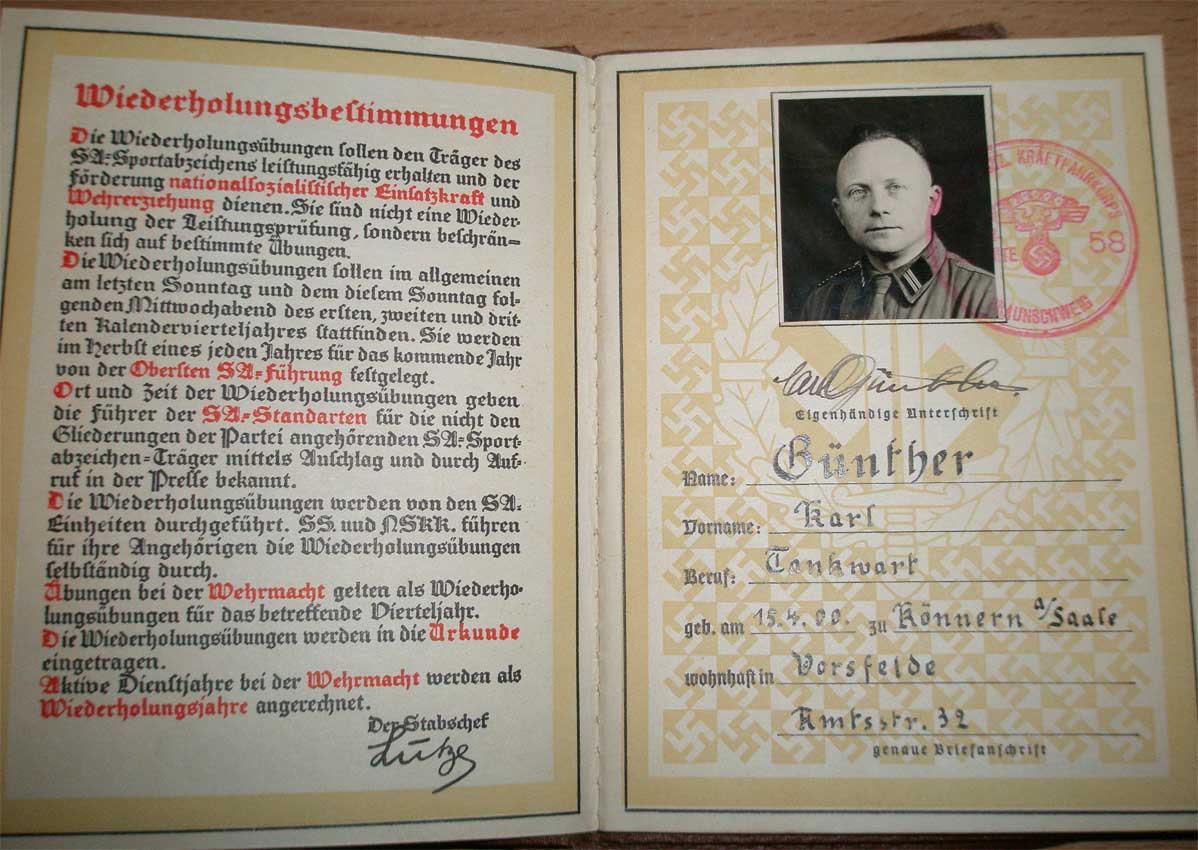 Wiederholungsbestimmungen
Die Wiederholungsübungen sollen den Träger des
SA.-Sportabzeichens leistungsfähig erhalten und der
Förderung nationalsozialistischer Einsatzkraft und
Wehrerziehung dienen. Sie sind nicht eine Wieder-
holung der Leistungsprüfung, sondern beschrän-
ken sich auf bestimmte Übungen.
Die Wiederholungsübungen sollen im allgemeinen
am letzten Sonntag und dem diesem Sonntag fol-
genden Mittwochabend des ersten, zweiten und drit-
ten Kalendervierteljahres stattfinden. Sie werden
im Herbst eines jeden Jahres für das kommende Jahr
von der Obersten SA.-Führung festgelegt.
Ort und Zeit der Wiederholungsübungen geben
die Führer der SA.-Standarten für die nicht den
Gliederungen der Partei angehörenden SA.-Sport-
abzeichen-Träger mittels Anschlag und durch Auf-
ruf in der Presse bekannt.
Die Wiederholungsübungen werden von den SA.
Einheiten durchgeführt. SS. und NSKK. führen
für ihre Angehörigen die Wiederholungsübungen
selbständig durch.
Übungen bei der Wehrmacht gelten als Wiederho-
lungsübungen für das betreffende Vierteljahr.
Die Wiederholungsübungen werden in die Urkunde
eingetragen.
Aktive Dienstjahre bei der Wehrmacht werden als
Wiederholungsjahre angerechnet.
Der Stabschef
Lutze
KRAFTFAHRKORPS
58
Karl Günther
Eigenhändige Unterschrift
Name: Günther
Vorname: Karl
Beruf: Tankwart
geb. am 15.4.00. zu Könnern a/Saale
wohnhaft in Vorsfelde
Amtsstr. 32
genaue Briefanschrift